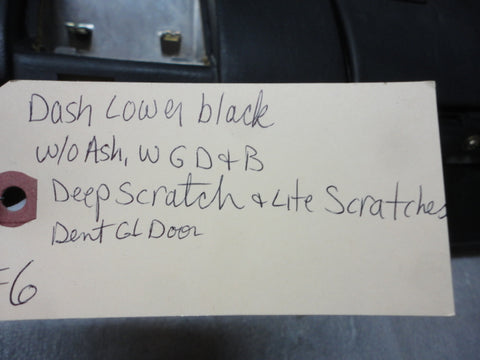 Dash Lower black
w/o Ash, W G D + B
Deep Scratch + Lite Scratches
Dent GL Door
F6